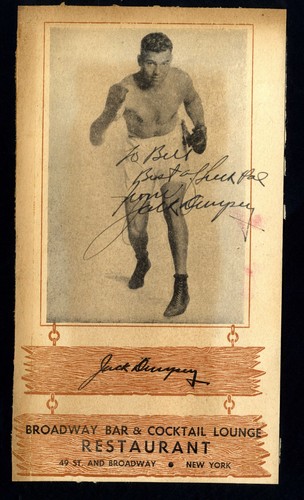 To Bill
Best of Luck Pal
from
Jack Dempsey
Jack Dempsey
BROADWAY BAR & COCKTAIL LOUNGE
RESTAURANT
49 ST. AND BROADWAY • NEW YORK